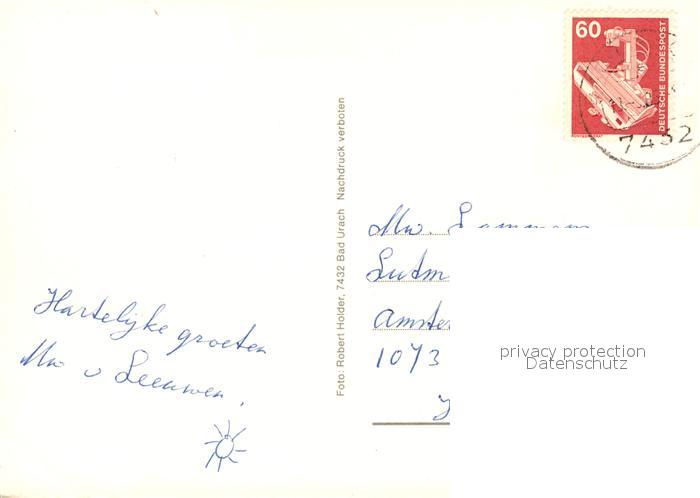 60
DEUTSCHE BUNDESPOST
7432
Foto: Robert Holder, 7432 Bad Urach Nachdruck verboten
Hartelijke groeten
Mw v Leeuwen,
Mw.
Amster
1073
privacy protection
Datenschutz